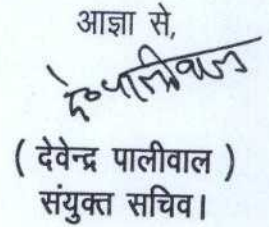 आज्ञा से,
दे०पालीवाल
( देवेन्द्र पालीवाल )
संयुक्त सचिव।